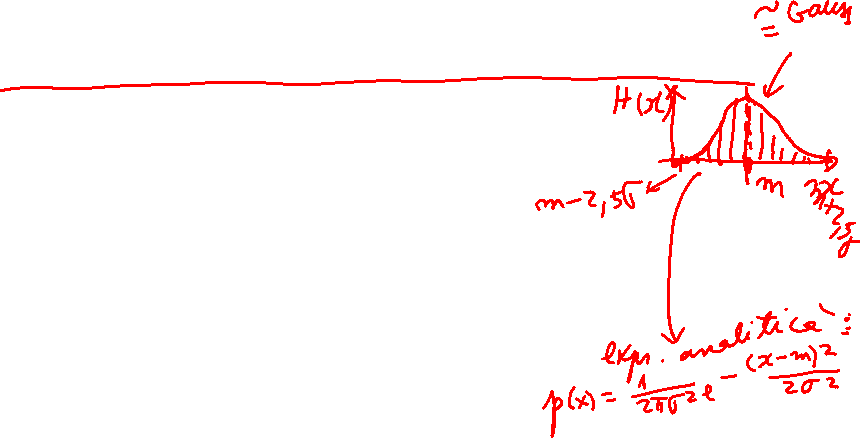 ≅ Gauss
H(x)
m-2,5σ
m
x
m+2,5σ
expr. analitică:
p(x) = 1/2πσ² e^-(x-m)²/2σ²